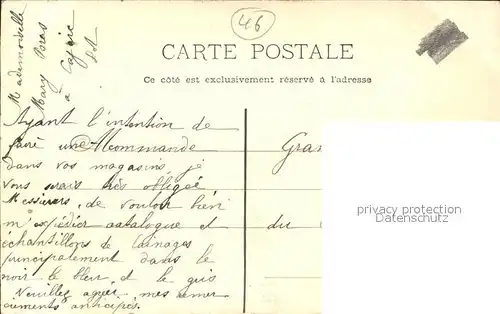 46
CARTE POSTALE
Ce côté est exclusivement réservé à l'adresse
Mademoiselle
Mary
à
Ayant l'intention de
faire une commande
dans vos magasins, je
vous serais très obligée
Messieurs, de vouloir bien
m'expédier catalogue et
échantillons de lainages
principalement dans le
noir le bleu, et le gris
Veuillez agréer, mes remer
ciements anticipés.
Gran
du
privacy protection
Datenschutz